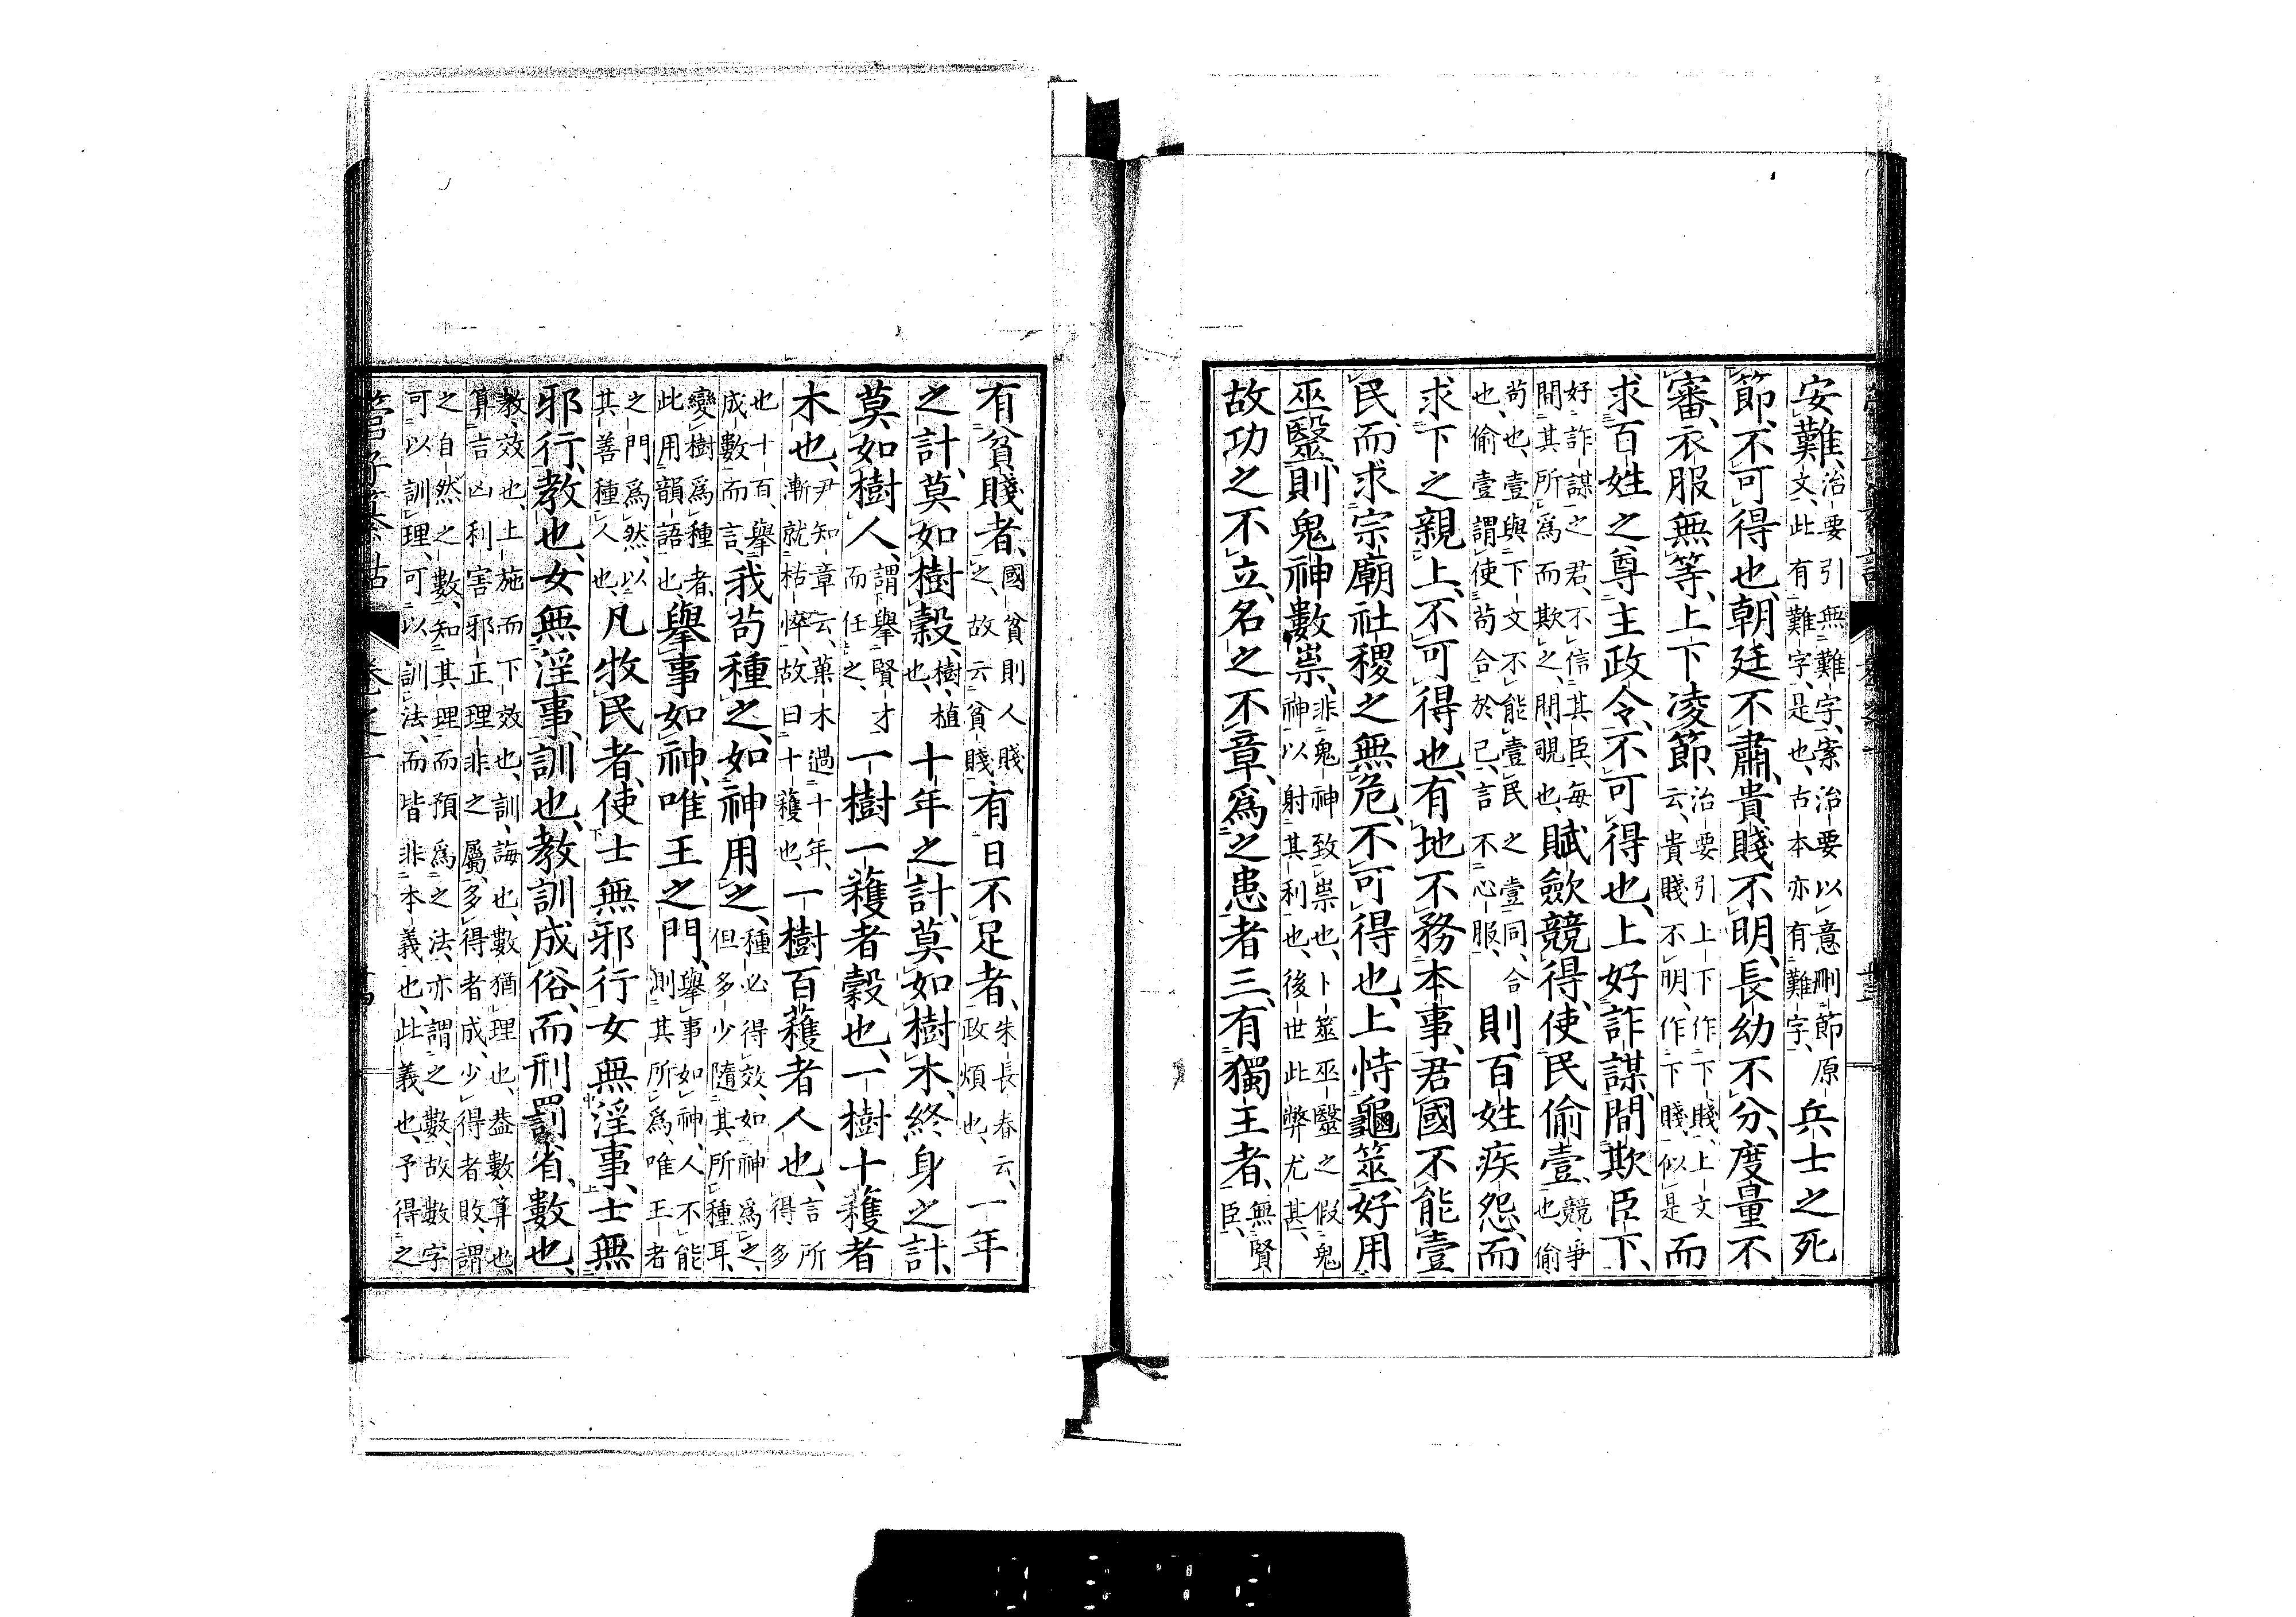 安難、治要引無難字、案治要以意刪節原
文、此有難字、是也、古本亦有難字、兵士之死
節、不可得也、朝廷不肅、貴賤不明、長幼不分、度量不
審、衣服無等、上下凌節、治要引上下作下賤、上文
云、貴賤不明、作下賤、似是而
求百姓之尊主政令、不可得也、上好詐謀、間欺臣下、
好詐謀之君、不信其臣、每
間其所爲而欺之、間、覗也、賦斂競得、使民偷壹、競、爭
也、偷
苟也、壹與下文不能壹民之壹同、合
也、偷壹謂使苟合於己、言不心服、則百姓疾怨、而
求下之親上、不可得也、有地不務本事、君國不能壹
民、而求宗廟社稷之無危、不可得也、上恃龜筮、好用
巫毉、則鬼神數祟、非鬼神致祟也、卜筮巫毉之假鬼
神以射其利也、後世此弊尤甚、
故功之不立、名之不章、爲之患者三、有獨王者、無賢
臣、
有貧賤者、國貧則人賤
之、故云貧賤、有日不足者、朱長春云、
政煩也、一年
之計、莫如樹穀、樹、植
也、十年之計、莫如樹木、終身之計、
莫如樹人、謂舉賢才
而任之、一樹一穫者穀也、一樹十穫者
木也、尹知章云、菓木過十年、
漸就枯悴、故曰十穫也、一樹百穫者人也、言所
得多
也、十百、舉
成數而言、我苟種之、如神用之、種必得效、如神爲之、
但多少隨其所種耳、
變樹爲種者、
此用韻語也、舉事如神、唯王之門、舉事如神、人不能
則其所爲、唯王者
之門爲然、以
其善種人也、凡牧民者、使士無邪行、女無淫事、士無
邪行、教也、女無淫事、訓也、教訓成俗、而刑罰省、數也、
教、效也、上施而下效也、訓、誨也、數猶理也、葢數、算也、
算吉凶利害邪正理非之屬、多得者成、少得者敗、謂
之自然之數、知其理而預爲之法、亦謂之數、故數字
可以訓理、可以訓法、而皆非本義也、此義也、予得之